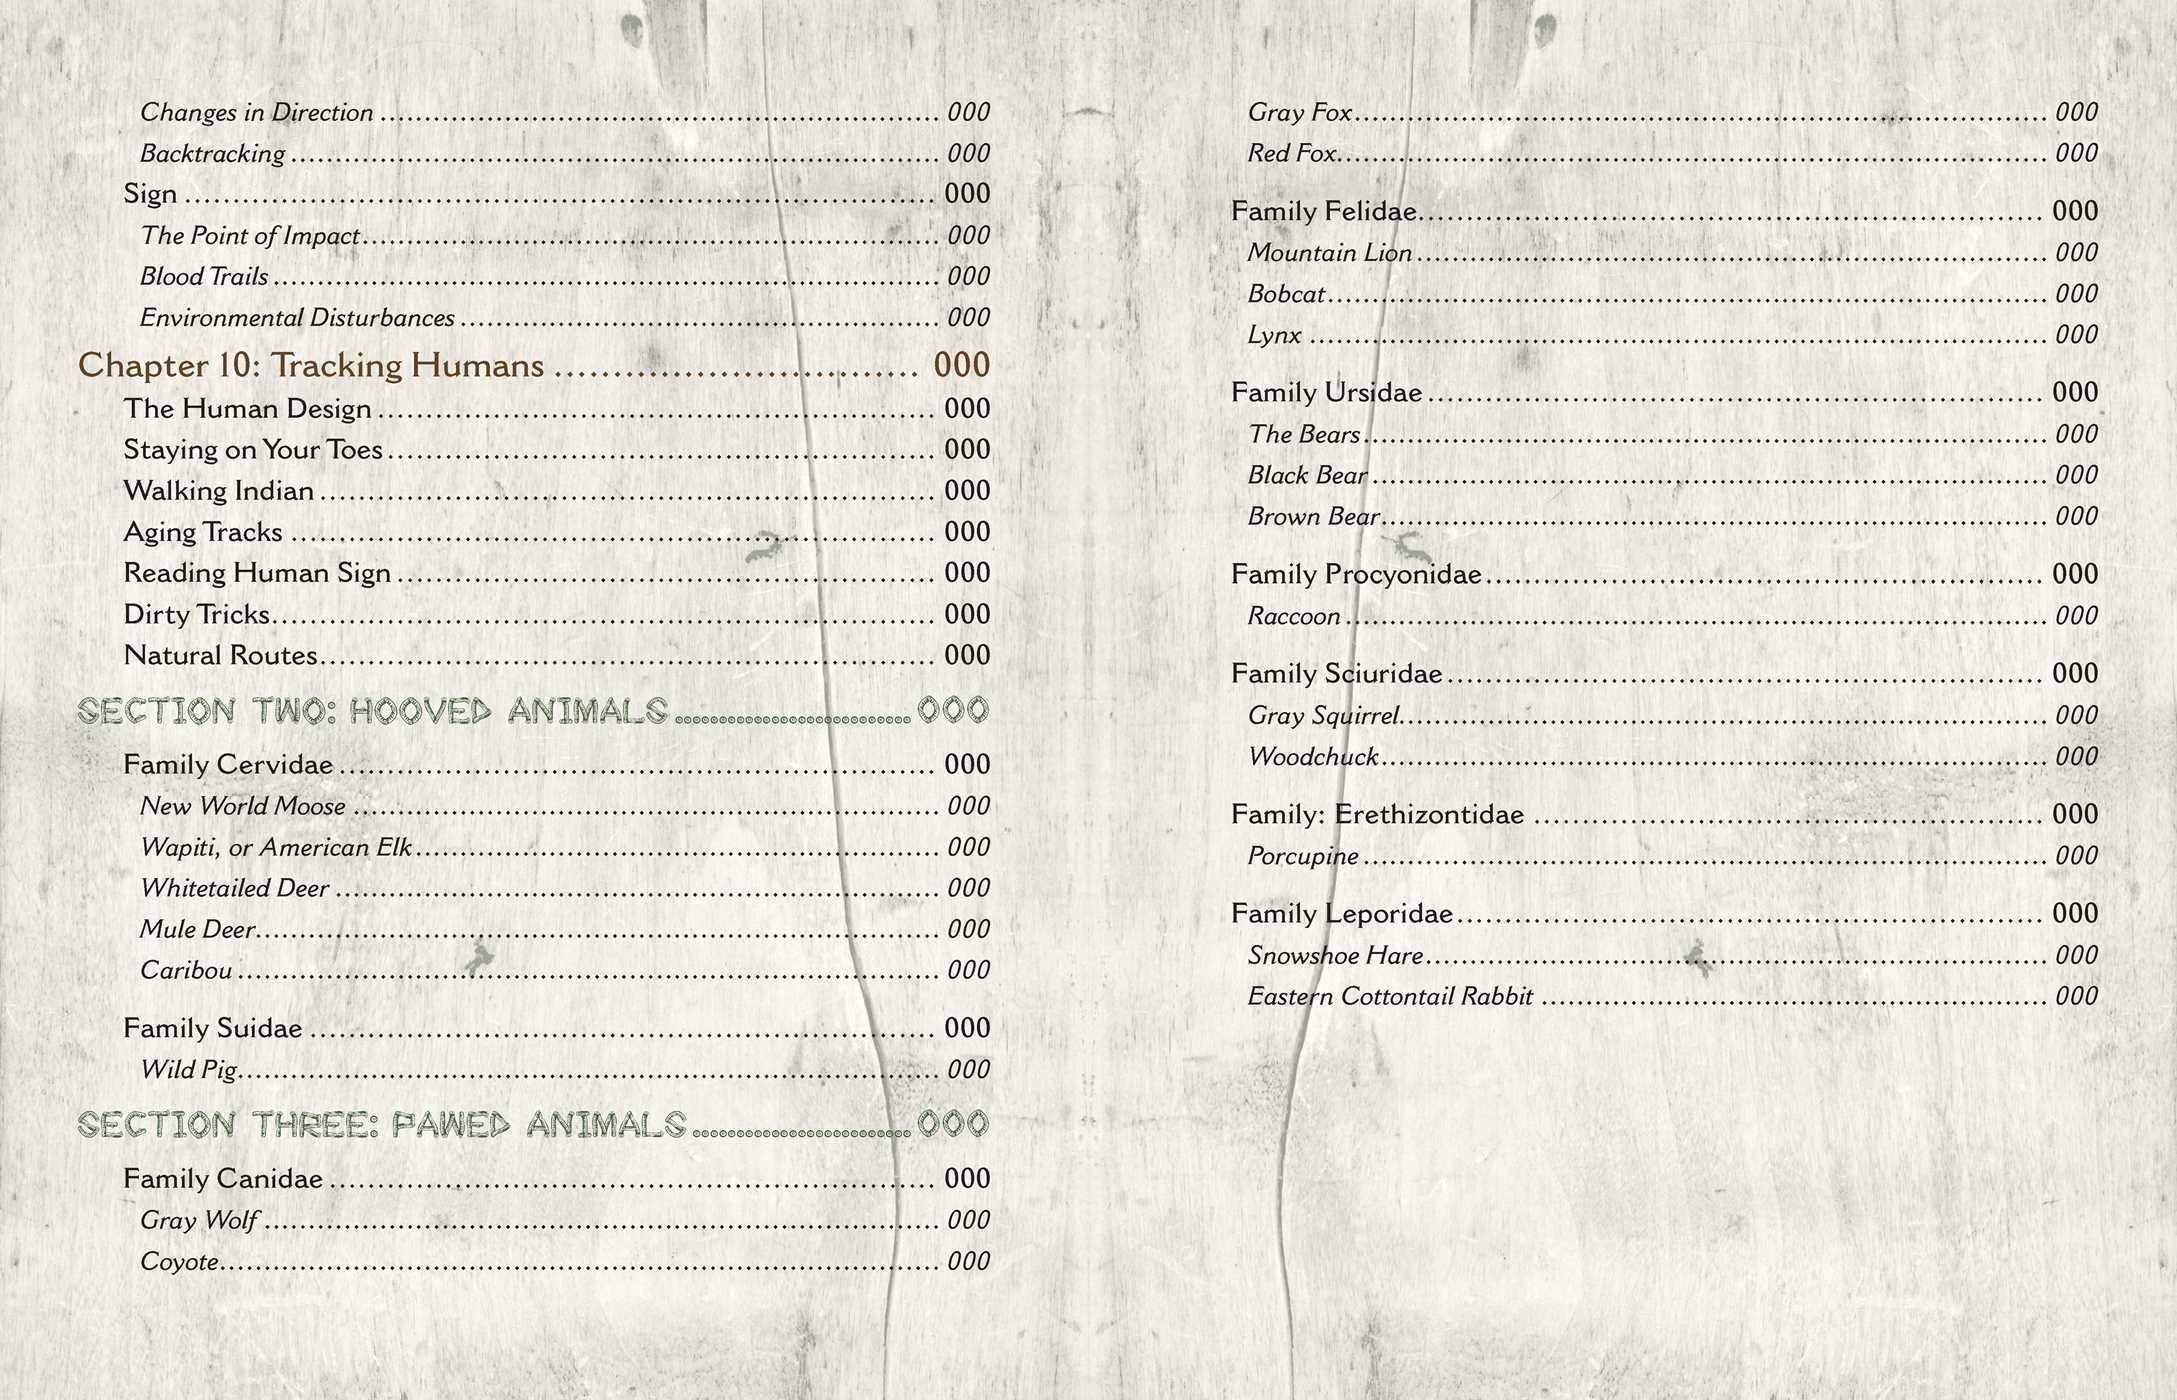 Changes in Direction ........ 000
Backtracking ........ 000
Sign ........ 000
The Point of Impact ........ 000
Blood Trails ........ 000
Environmental Disturbances ........ 000
Chapter 10: Tracking Humans ........ 000
The Human Design ........ 000
Staying on Your Toes ........ 000
Walking Indian ........ 000
Aging Tracks ........ 000
Reading Human Sign ........ 000
Dirty Tricks ........ 000
Natural Routes ........ 000
SECTION TWO: HOOVED ANIMALS ........ 000
Family Cervidae ........ 000
New World Moose ........ 000
Wapiti, or American Elk ........ 000
Whitetailed Deer ........ 000
Mule Deer ........ 000
Caribou ........ 000
Family Suidae ........ 000
Wild Pig ........ 000
SECTION THREE: PAWED ANIMALS ........ 000
Family Canidae ........ 000
Gray Wolf ........ 000
Coyote ........ 000
Gray Fox ........ 000
Red Fox ........ 000
Family Felidae ........ 000
Mountain Lion ........ 000
Bobcat ........ 000
Lynx ........ 000
Family Ursidae ........ 000
The Bears ........ 000
Black Bear ........ 000
Brown Bear ........ 000
Family Procyonidae ........ 000
Raccoon ........ 000
Family Sciuridae ........ 000
Gray Squirrel ........ 000
Woodchuck ........ 000
Family: Erethizontidae ........ 000
Porcupine ........ 000
Family Leporidae ........ 000
Snowshoe Hare ........ 000
Eastern Cottontail Rabbit ........ 000